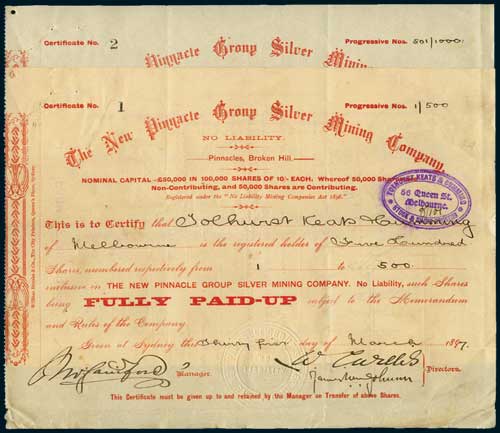 Certificate No. 2
Progressive Nos. 501/1000
Pinnacle Group Silver Mining
Certificate No. 1
Progressive Nos. 1/500
The New Pinnacle Group Silver Mining Company
NO LIABILITY.
Pinnacles, Broken Hill.
NOMINAL CAPITAL £50,000 IN 100,000 SHARES OF 10/- EACH. Whereof 50,000 Shares
Non-Contributing, and 50,000 Shares are Contributing.
Registered under the "No Liability Mining Companies Act 1896."
TOLHURST KEATS & CUMMING
56 Queen St.
Melbourne.
STOCK & SHARE
This is to Certify that Tolhurst Keats & Cumming
of Melbourne is the registered holder of Five Hundred
Shares, numbered respectively from 1 to 500
inclusive in THE NEW PINNACLE GROUP SILVER MINING COMPANY. No Liability, such Shares
being FULLY PAID-UP subject to the Memorandum
and Rules of the Company
Given at Sydney this Thirty first day of March 1897.
Manager.
Directors.
This Certificate must be given up to and retained by the Manager on Transfer of above Shares.